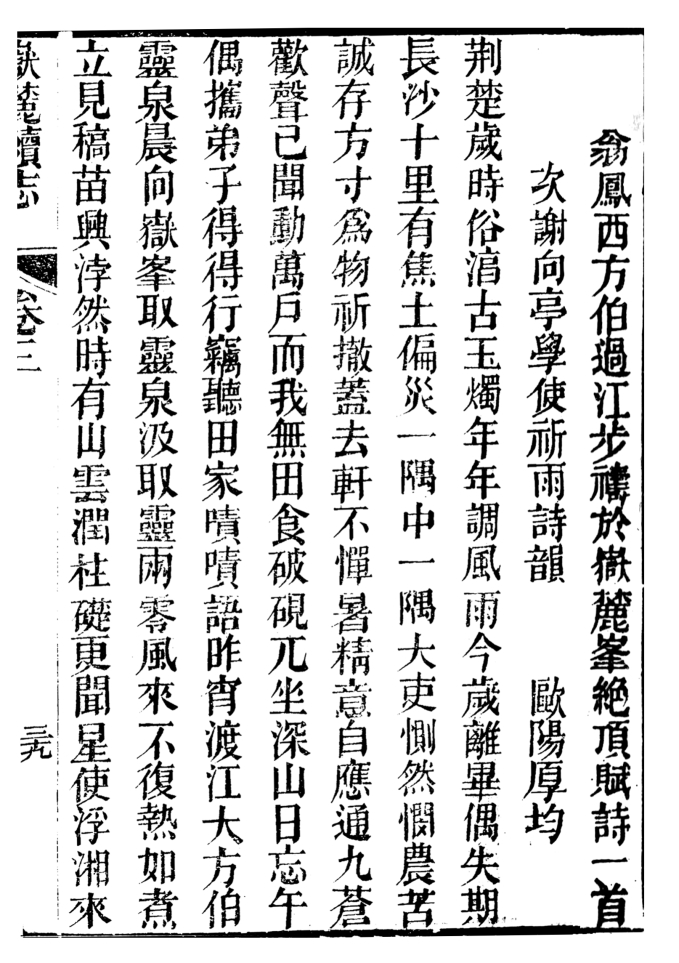 翁鳳西方伯過江步禱於嶽麓峯絶頂賦詩一首
次謝向亭學使祈雨詩韻 歐陽厚均
荆楚歲時俗淊古玉燭年年調風雨今歲離畢偶失期
長沙十里有焦土偏災一隅中一隅大吏惻然憫農苦
誠存方寸爲物祈撤蓋去軒不憚暑精意自應通九蒼
歡聲已聞動萬戶而我無田食破硯兀坐深山日忘午
偶攜弟子得得行竊聽田家嘖嘖語昨宵渡江大方伯
靈泉晨向嶽峯取靈泉汲取靈雨零風來不復熱如煮
立見稿苗興浡然時有山雲潤柱礎更聞星使浮湘來
嶽麓續志 卷三 三九